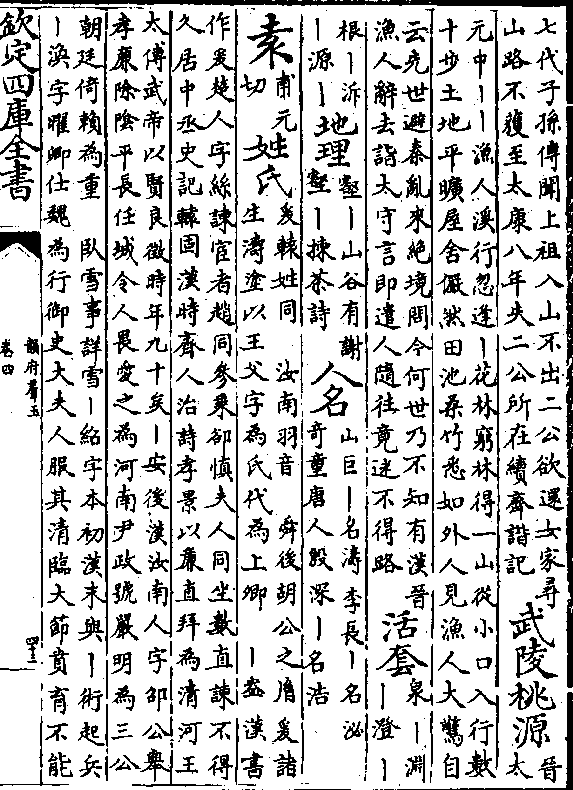 七代子孫傳聞上祖入山不出二公欲還女家尋
山路不獲至太康八年失二公所在續齊諧記
武陵桃源
晉
太
元中丨丨漁人溪行忽逢丨花林窮林得一山從小口入行數
十步土地平曠屋舍儼然田池桑竹悉如外人見漁人大驚自
云先世避秦亂來絶境問今何世乃不知有漢晉
漁人辭去詣太守言即遣人隨往竟迷不得路
活套
泉丨淵
丨澄丨
根丨泝
丨源丨
地理
壑丨山谷有謝
壑丨揀茶詩
人名
山巨丨名濤李長丨名泌
奇童唐人殷深丨名浩
袁
甫元
切
姓氏
爰轅姓同 汝南羽音 舜後胡公之裔爰諸
生濤塗以王父字為氏代為上卿 丨盎漢書
作爰楚人字絲諫宦者趙同參乗郤慎夫人同坐數直諫不得
久居中丞史記轅固漢時齊人治詩孝景以廉直拜為清河王
太傅武帝以賢良徵時年九十矣丨安後漢汝南人字邵公舉
孝廉除陰平長任城令人畏愛之為河南尹政號嚴明為三公
朝廷倚賴為重 臥雪事詳雪丨紹字本初漢末與丨術起兵
丨渙字曜卿仕魏為行御史大夫人服其清臨大節賁育不能
欽定四庫全書
韻府羣玉
卷四
四十三